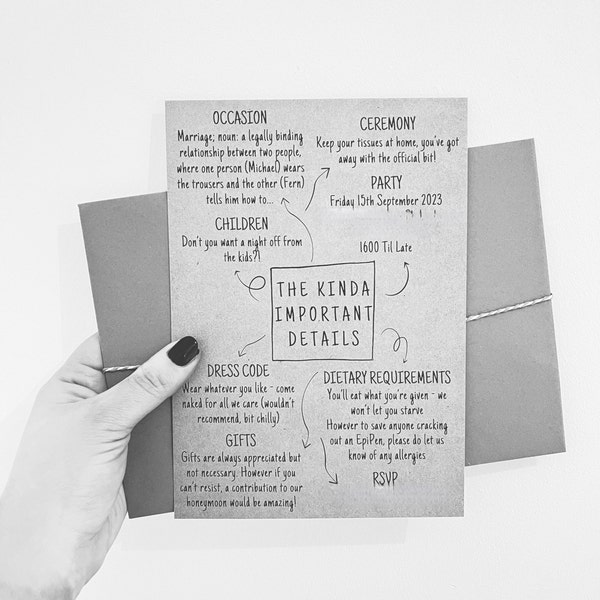 OCCASION
Marriage; noun: a legally binding
relationship between two people,
where one person (Michael) wears
the trousers and the other (Fern)
tells him how to...
CEREMONY
Keep your tissues at home, you've got
away with the official bit!
PARTY
Friday 15th September 2023
1600 Til Late
CHILDREN
Don't you want a night off from
the kids?!
THE KINDA
IMPORTANT
DETAILS
DRESS CODE
Wear whatever you like - come
naked for all we care (wouldn't
recommend, bit chilly)
GIFTS
Gifts are always appreciated but
not necessary. However if you
can't resist, a contribution to our
honeymoon would be amazing!
DIETARY REQUIREMENTS
You'll eat what you're given - we
won't let you starve
However to save anyone cracking
out an EpiPen, please do let us
know of any allergies
RSVP